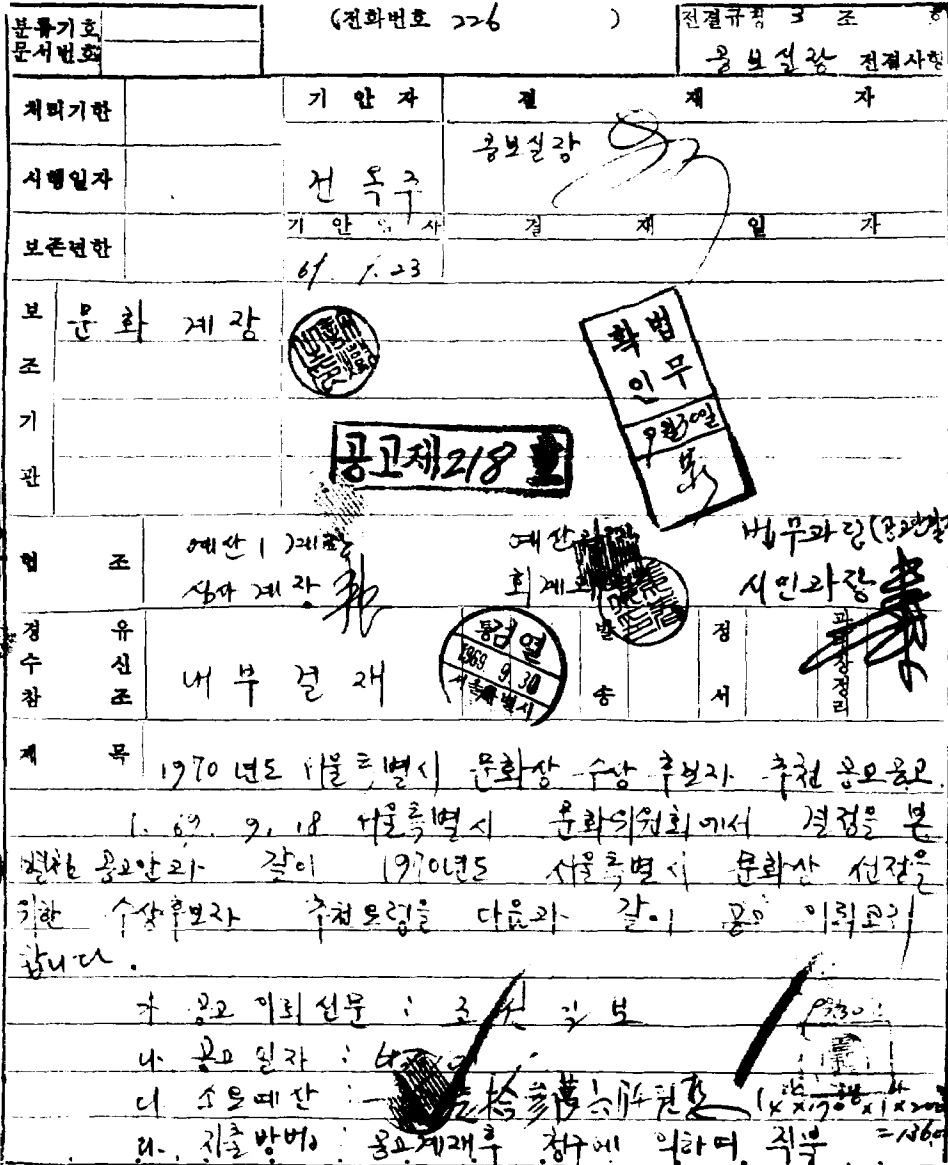 분류기호
문서번호
(전화번호 226 )
전결규칙 3 조
공보실장 전결사항
처리기한
기 안 자
결 재 자
공보실장
시행일자
전 옥 주
기 안 일 자
결 재 일 자
보존년한
69. 9. 23
보 조 기 관
문 화 계 장
법무
확인
9월30일
공고제218호
협 조
예산1계장
심사계장
예산과장
회계과장
법무과장
시민과장
경 유
수 신
참 조
내 부 결 재
통
검열
1969. 9. 30
서울특별시
발 송
정 서
제 목
1970년도 서울특별시 문화상 수상 후보자 추천 공모공고
1. 69. 9. 18 서울특별시 문화위원회에서 결정을 본
별첨 공고안과 같이 1970년도 서울특별시 문화상 선정을
위한 수상후보자 추천요령을 다음과 같이 공고 의뢰코저
합니다.
가. 공고 의뢰신문 : 조선일보
나. 공고일자 :
다. 소요예산 : 壹拾參萬六仟원
라. 지출방법 : 공고게재후 청구에 의하여 직불